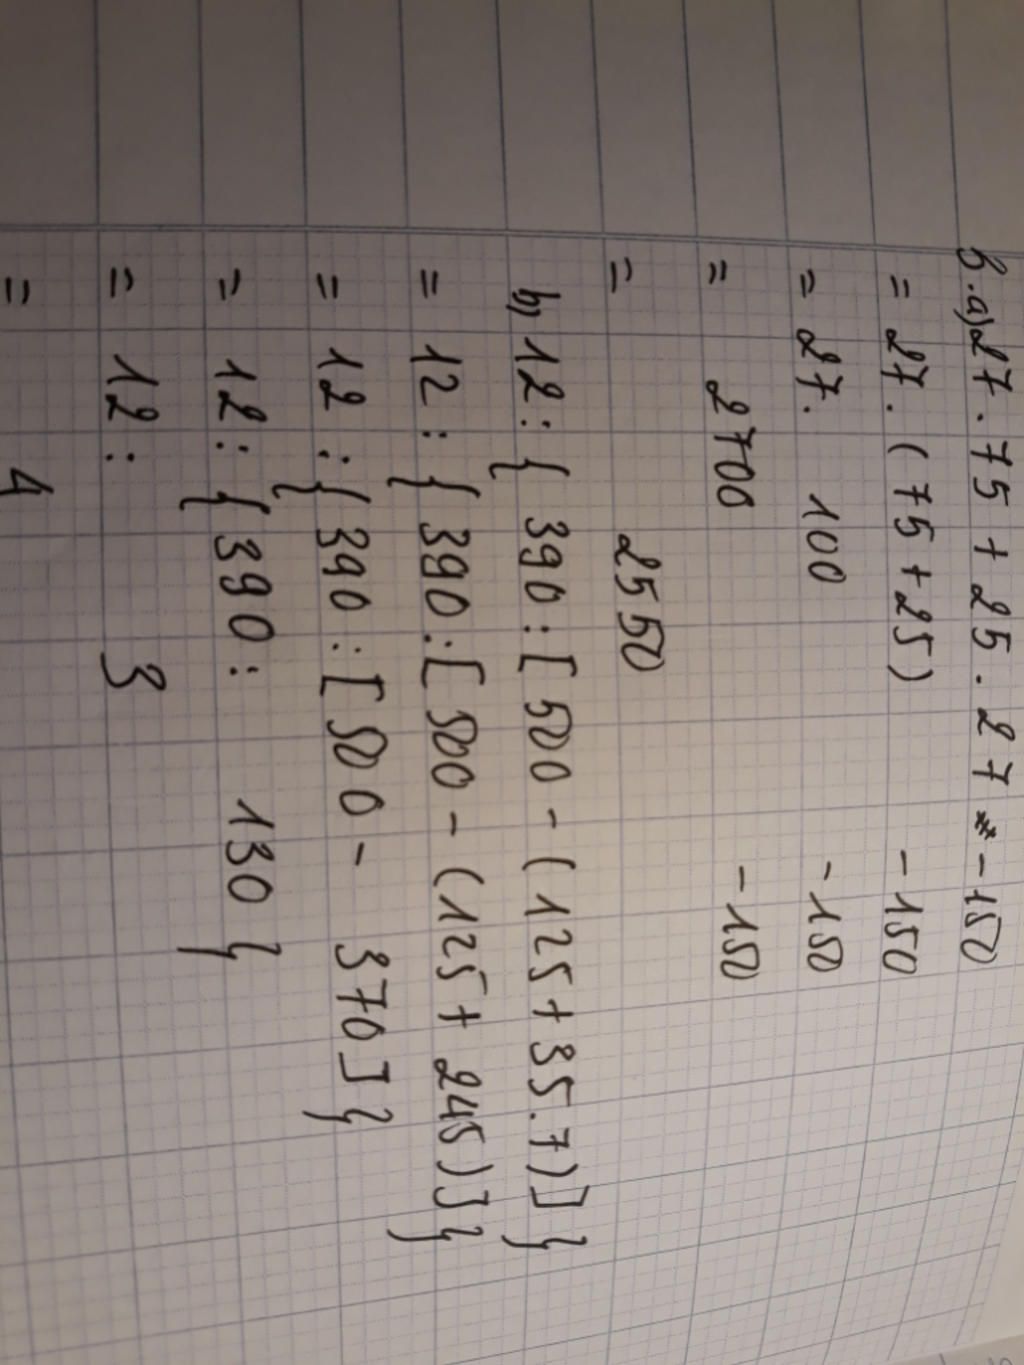 B.a) 27.75 + 25.27 - 150
= 27.(75+25) - 150
= 27. 100 - 150
= 2700 - 150
= 2550
b) 12:{390:[500-(125+35.7)]}
= 12:{390:[500-(125+245)]}
= 12:{390:[500- 370]}
= 12:{390: 130}
= 12: 3
= 4